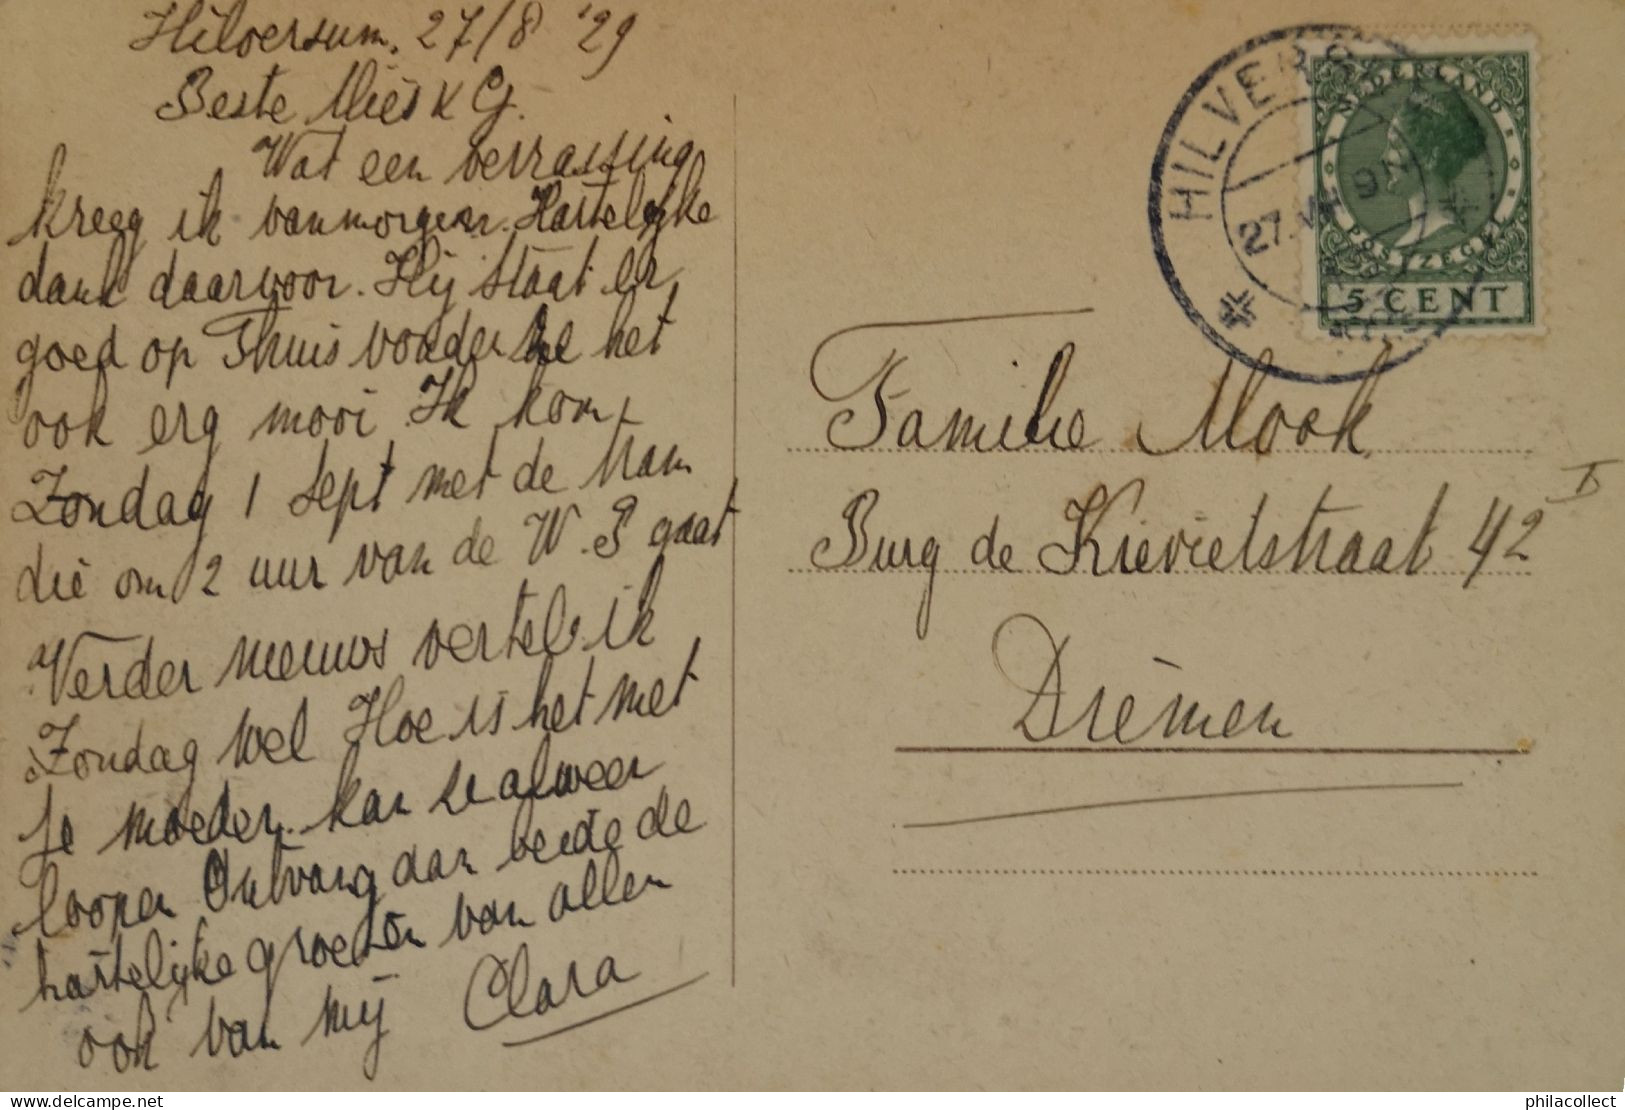 Hilversum, 27/8 '29
Beste Mies & G.
Wat een verrassing
kreeg ik vanmorgen. Hartelijke
dank daarvoor. Hij staat er
goed op Thuis vonden ze het
ook erg mooi. Ik kom
Zondag 1 Sept met de tram
die om 2 uur van de W.P gaat
Verder nieuws vertel ik
Zondag wel Hoe is het met
je moeder. kan ze alweer
loopen Ontvang dan beide de
hartelijke groeten van allen
ook van mij Clara
Familie Mook
Burg de Kievietstraat 42 I
Diemen
HILVERS
27.VII 9N
NEDERLAND
POSTZEGEL
5 CENT
philacollect